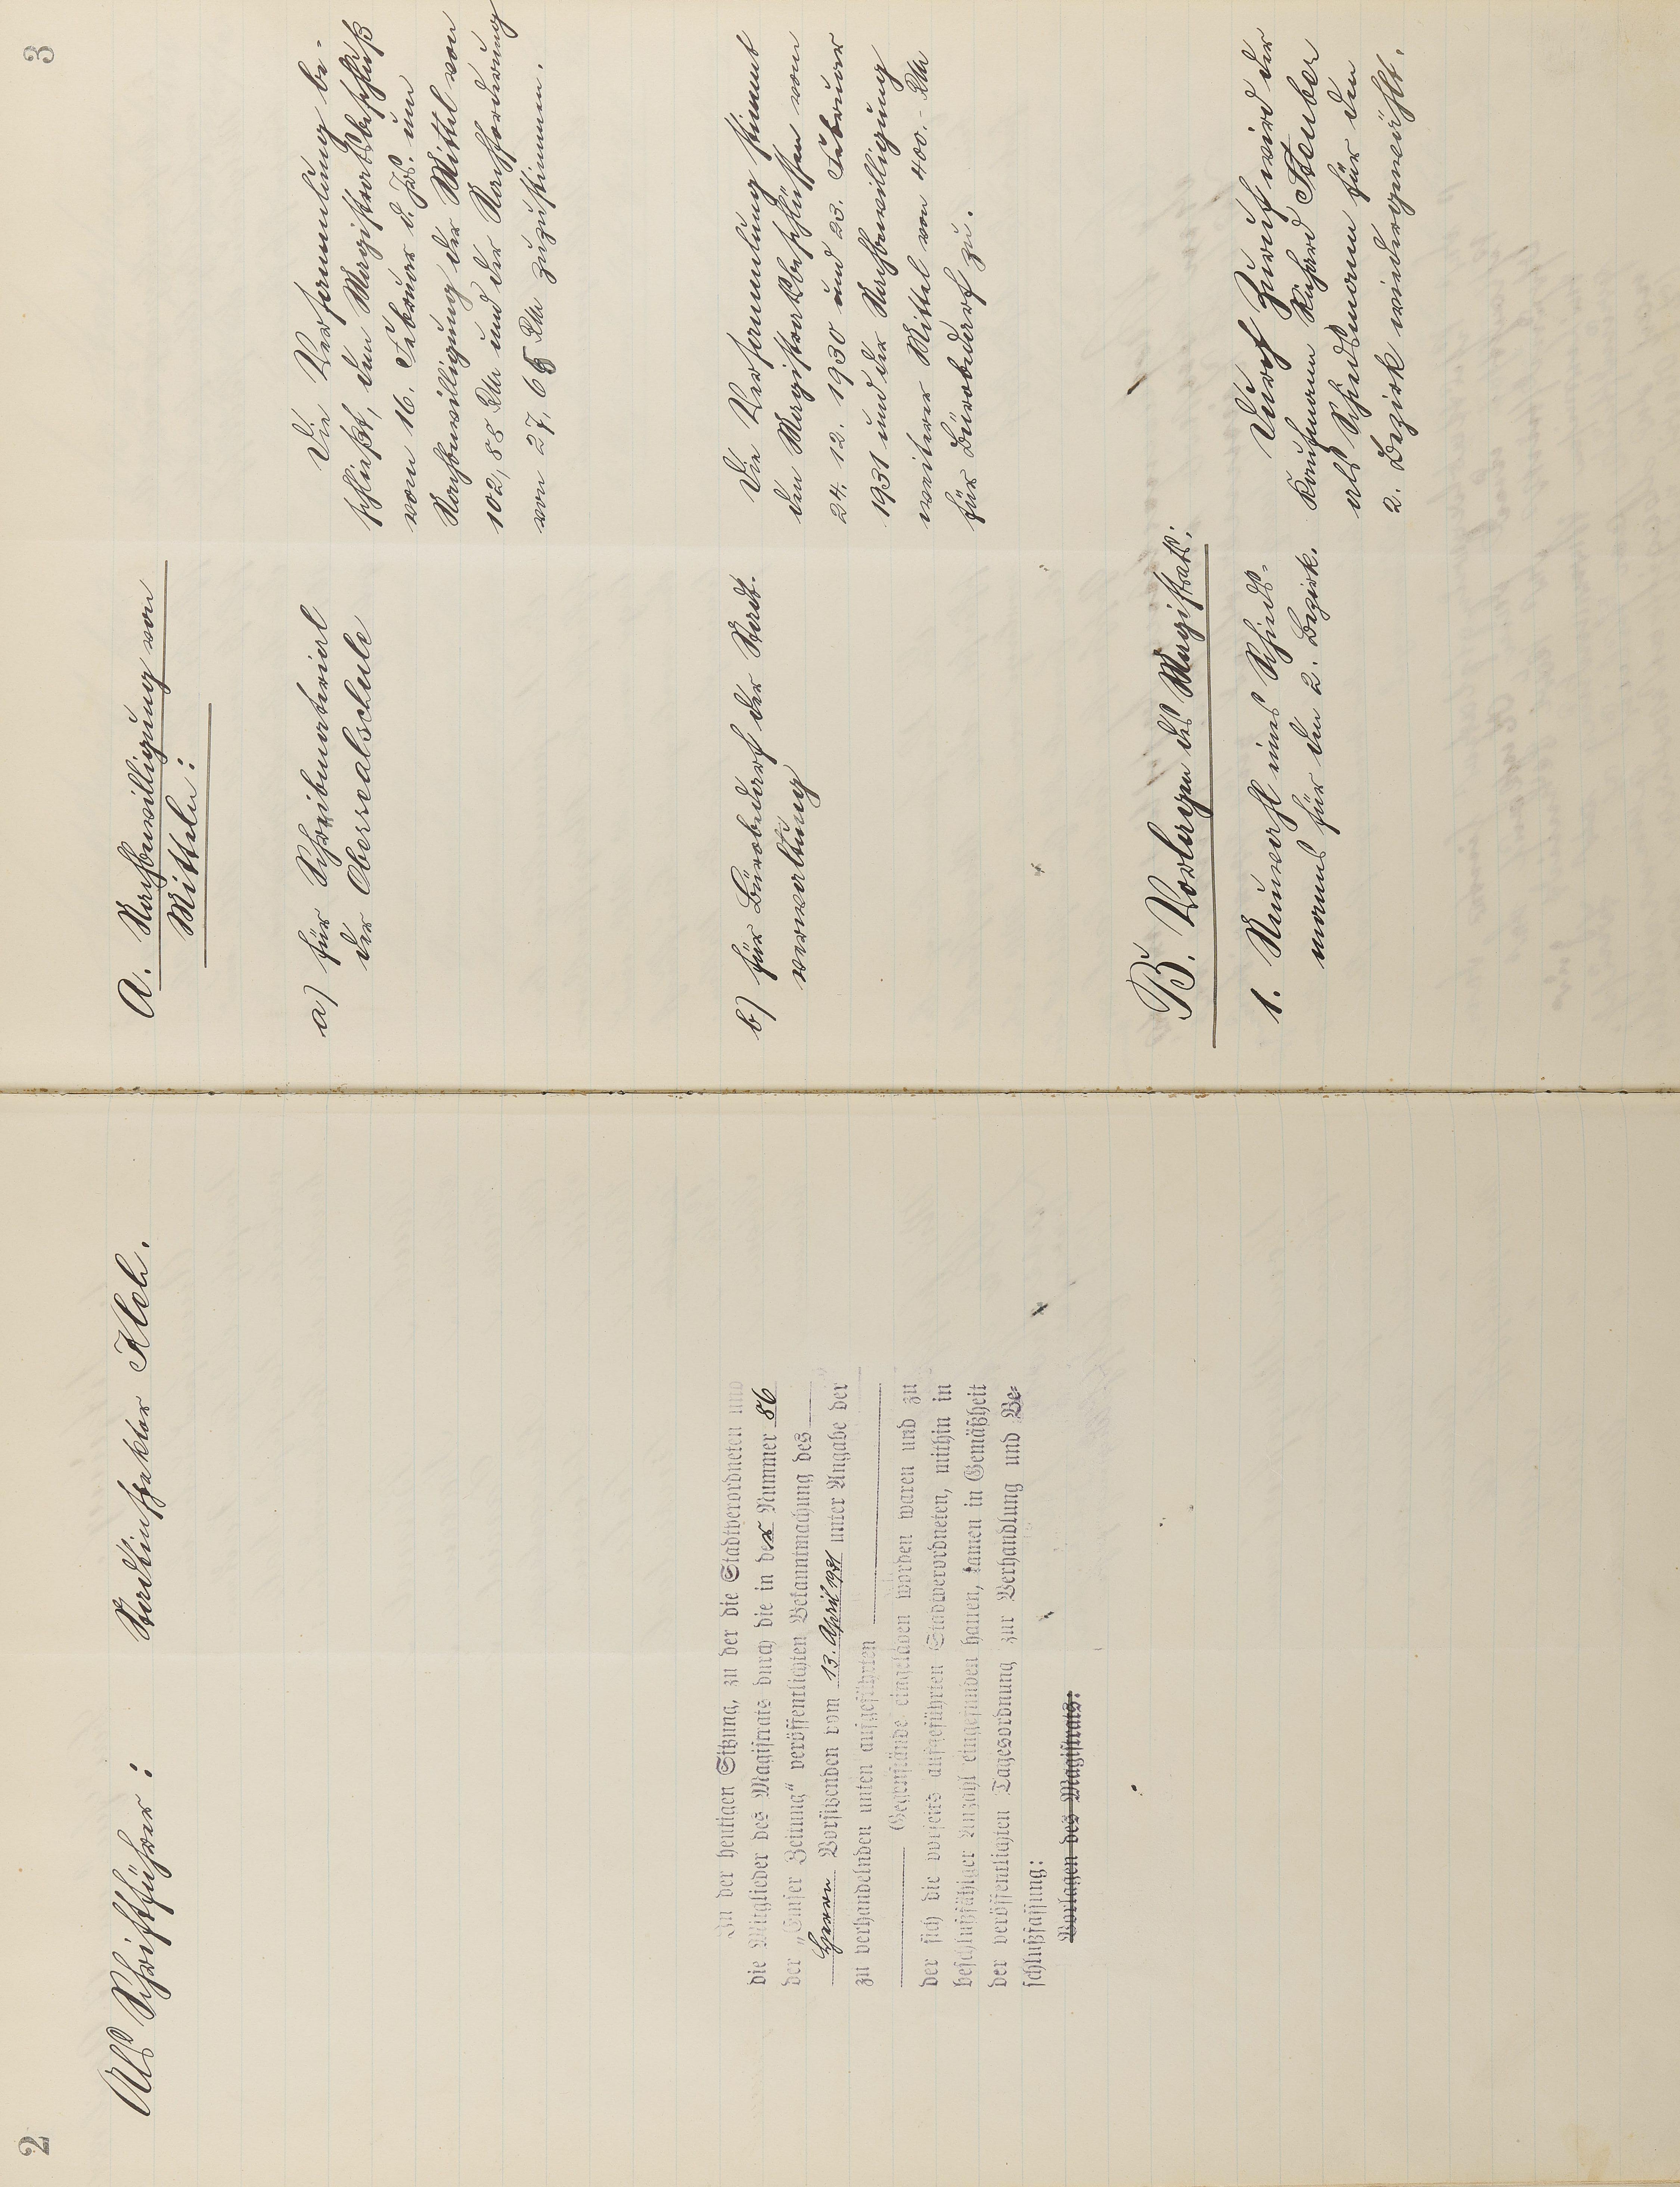 2
Als Schriftführer: Stadtinspektor Kleh.
In der heutigen Sitzung, zu der die Stadtverordneten und
die Mitglieder des Magistrats durch die in der Nummer 86
der „Emser Zeitung“ veröffentlichten Bekanntmachung des
Herrn Vorsitzenden vom 13. April 1931 unter Angabe der
zu verhandelnden unten aufgeführten
Gegenstände eingeladen worden waren und zu
der sich die vorseits aufgeführten Stadtverordneten, mithin in
beschlußfähiger Anzahl eingefunden hatten, kamen in Gemäßheit
der veröffentlichten Tagesordnung zur Verhandlung und Be-
schlußfassung:
Vorlagen des Magistrats:
3
A. Nachbewilligung von
Mitteln:
a) für Schreibmaterial
der Oberrealschule
Die Versammlung be-
schließt, dem Magistratsbeschluß
vom 16. Februar d. Js. um
Nachbewilligung der Mittel von
102,88 RM und der Nachforderung
von 27,65 RM zuzustimmen.
b) für Bürobedarf der Stadt-
verwaltung
Die Versammlung stimmt
den Magistratsbeschlüssen vom
24. 12. 1930 und 23. Februar
1931 und der Nachbewilligung
weiterer Mittel von 400.- RM
für Bürobedarf zu.
B. Vorlagen des Magistrats:
1. Neuwahl eines Schieds-
manns für den 2. Bezirk.
Durch Zuruf wird der
Kaufmann Richard Stauber
als Schiedsmann für den
2. Bezirk wiedergewählt.